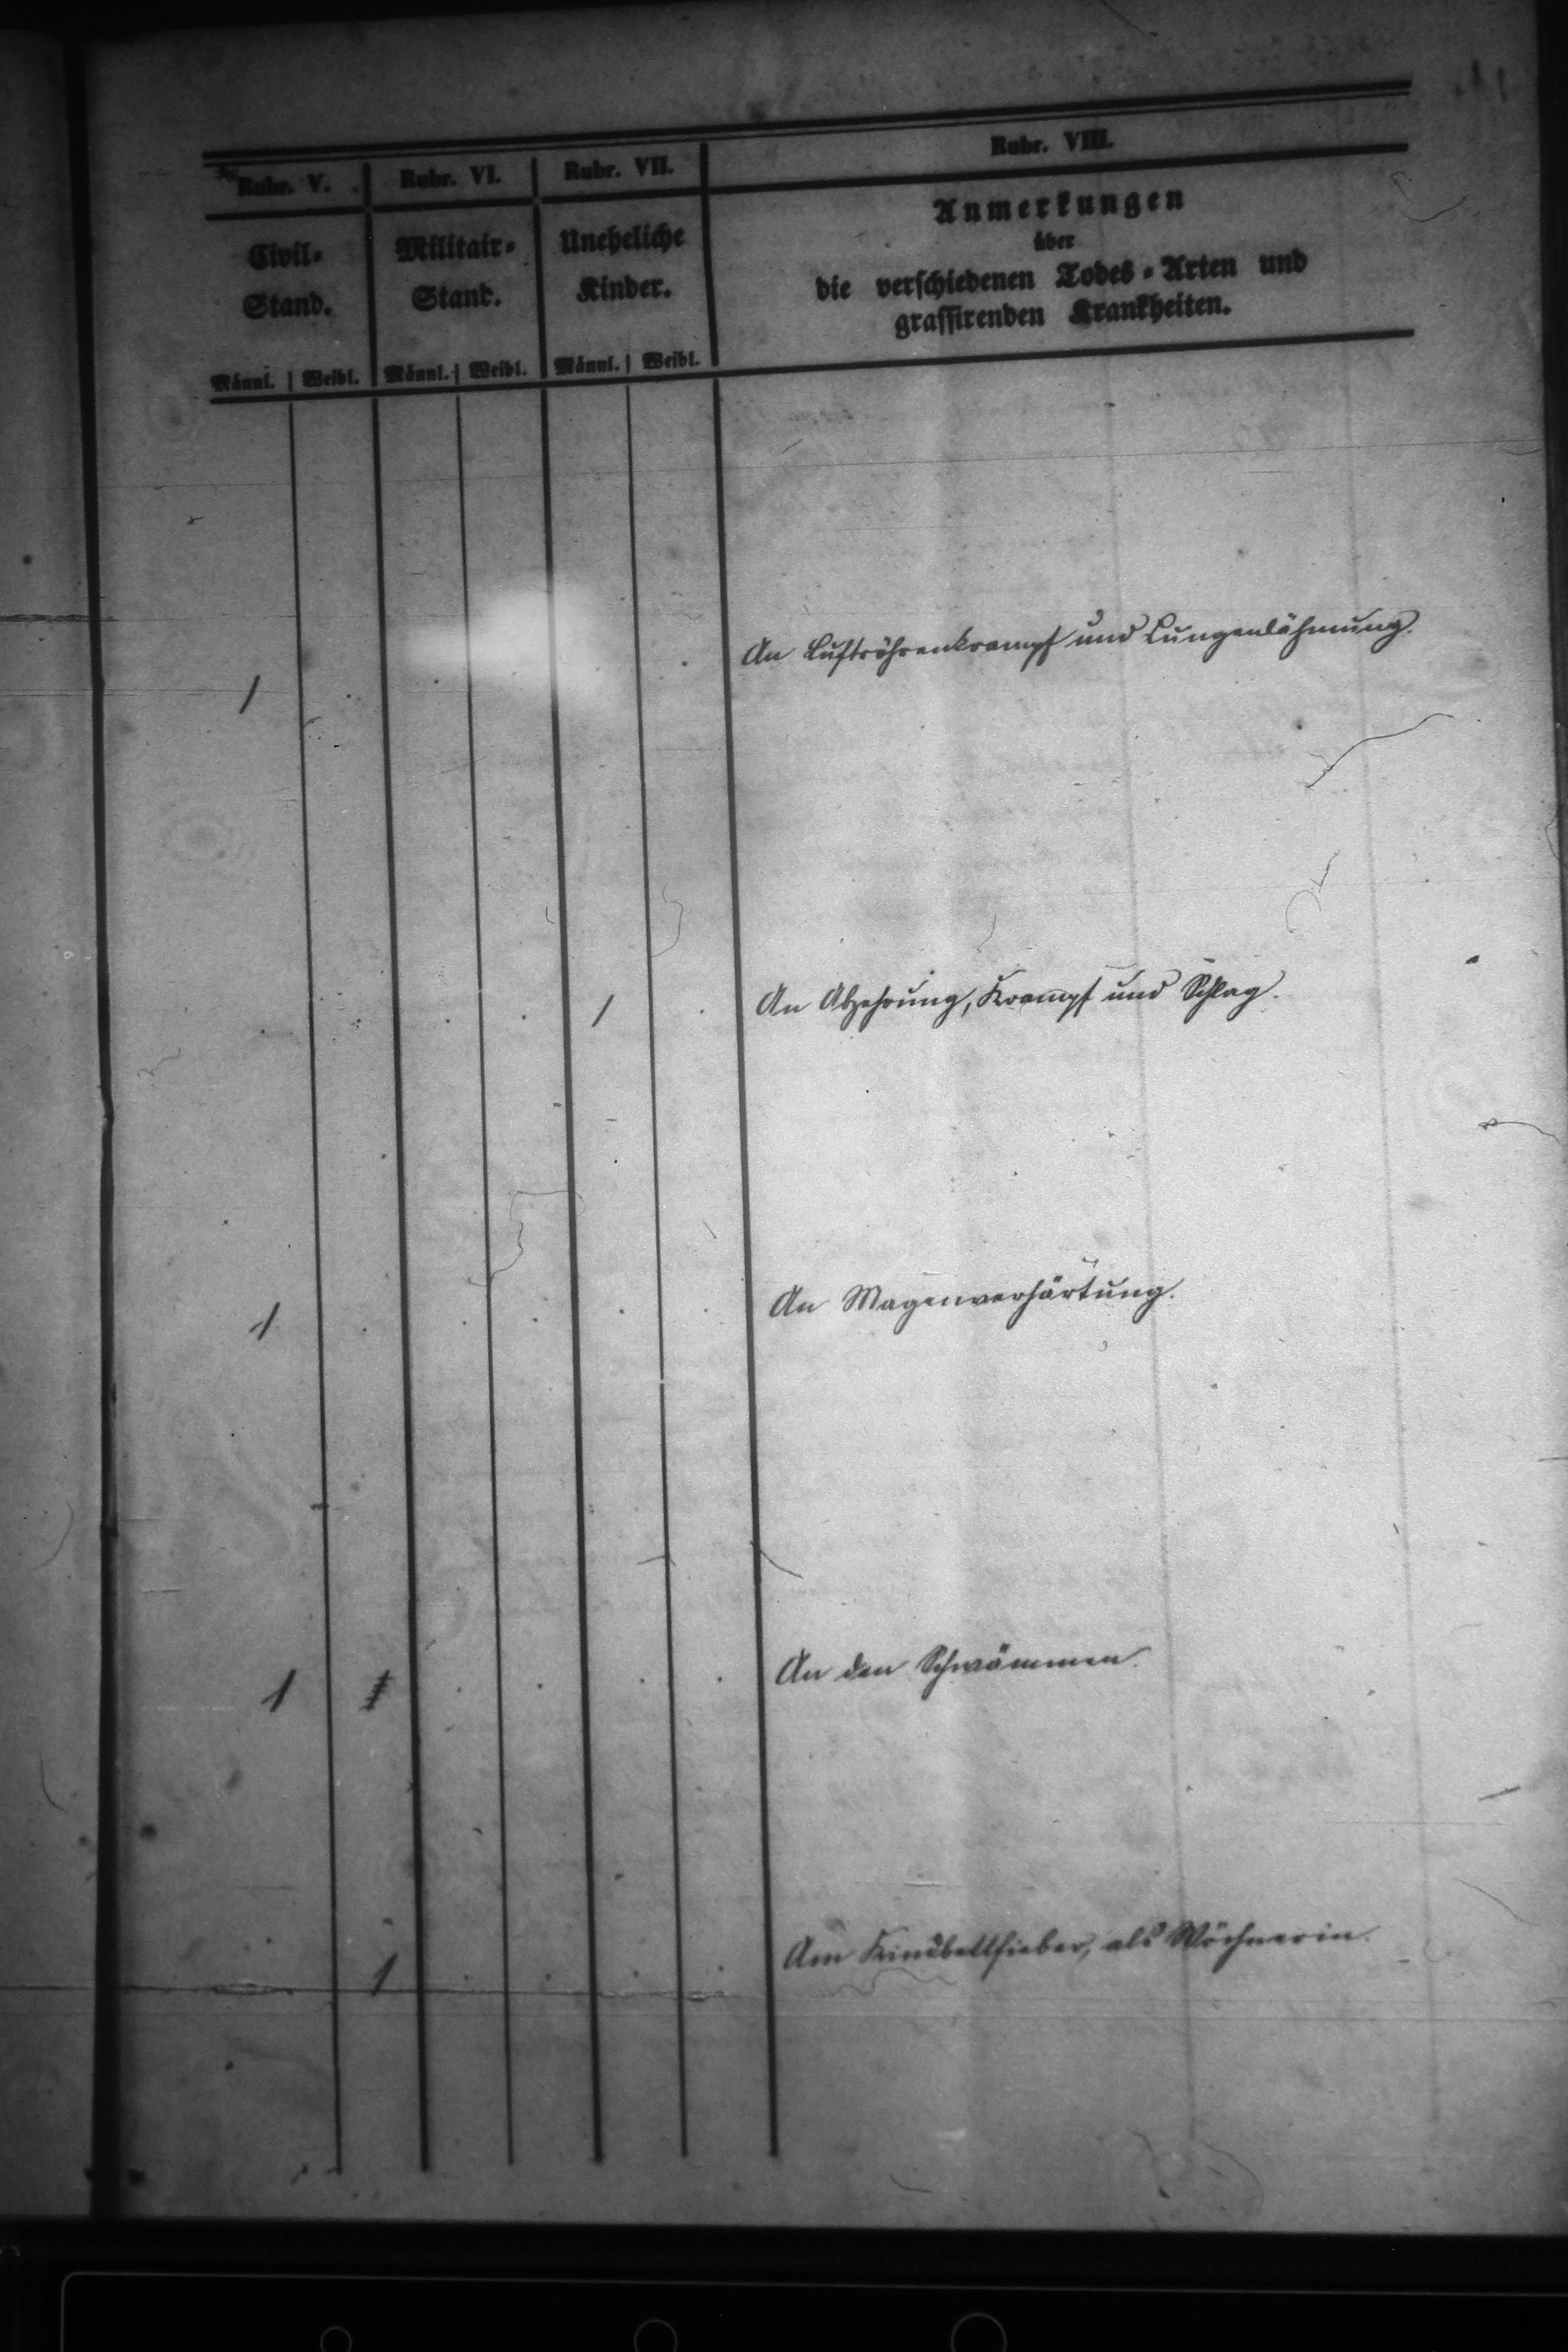 Rubr. V. Rubr. VI. Rubr. VII. Rubr. VIII.
Civil- Militair- Uneheliche Anmerkungen
Stand. Stand. Kinder. über
die verschiedenen Todes-Arten und
grassirenden Krankheiten.
Männl. Weibl. Männl. Weibl. Männl. Weibl.
1 . . . . An Luftröhrenkrampf und Lungenlähmung.
. . 1 . An Abzehrung, Krampf und Schlag.
1 . . . . . An Magenverhärtung.
1 1 . . . . An den Schwämmen.
1 . . . . Am Kindbettfieber, als Wöchnerin.